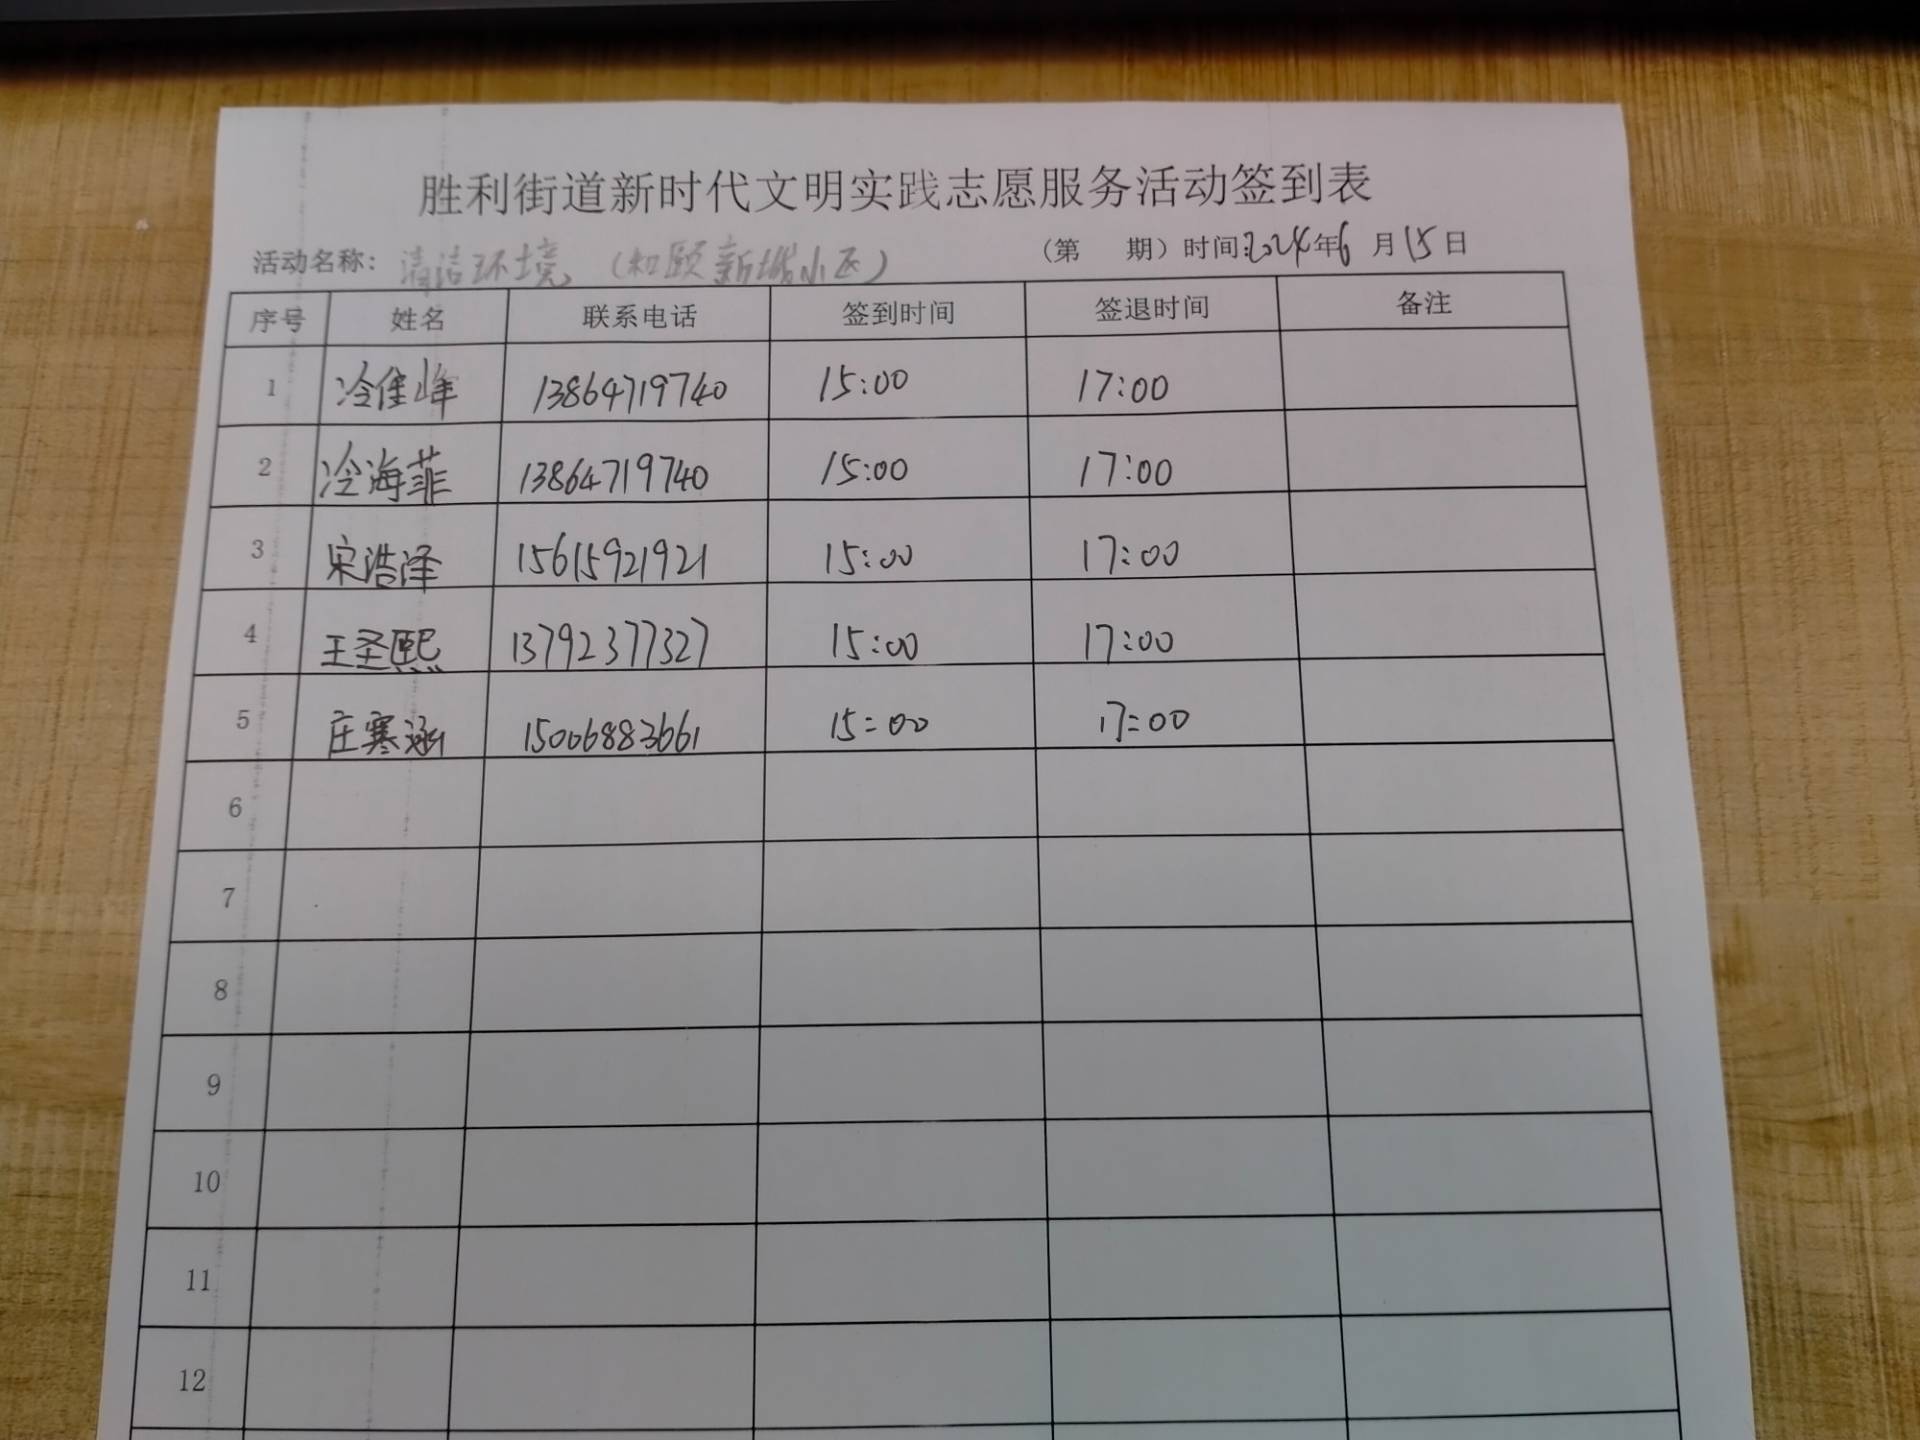 胜利街道新时代文明实践志愿服务活动签到表
活动名称：清洁环境（和颐新城小区） （第 期）时间:2024年6月15日
序号 姓名 联系电话 签到时间 签退时间 备注
1 冷佳峰 13864719740 15:00 17:00
2 冷海菲 13864719740 15:00 17:00
3 宋浩泽 15615921921 15:00 17:00
4 王圣熙 13792377327 15:00 17:00
5 庄寒涵 15006883661 15:00 17:00
6
7
8
9
10
11
12